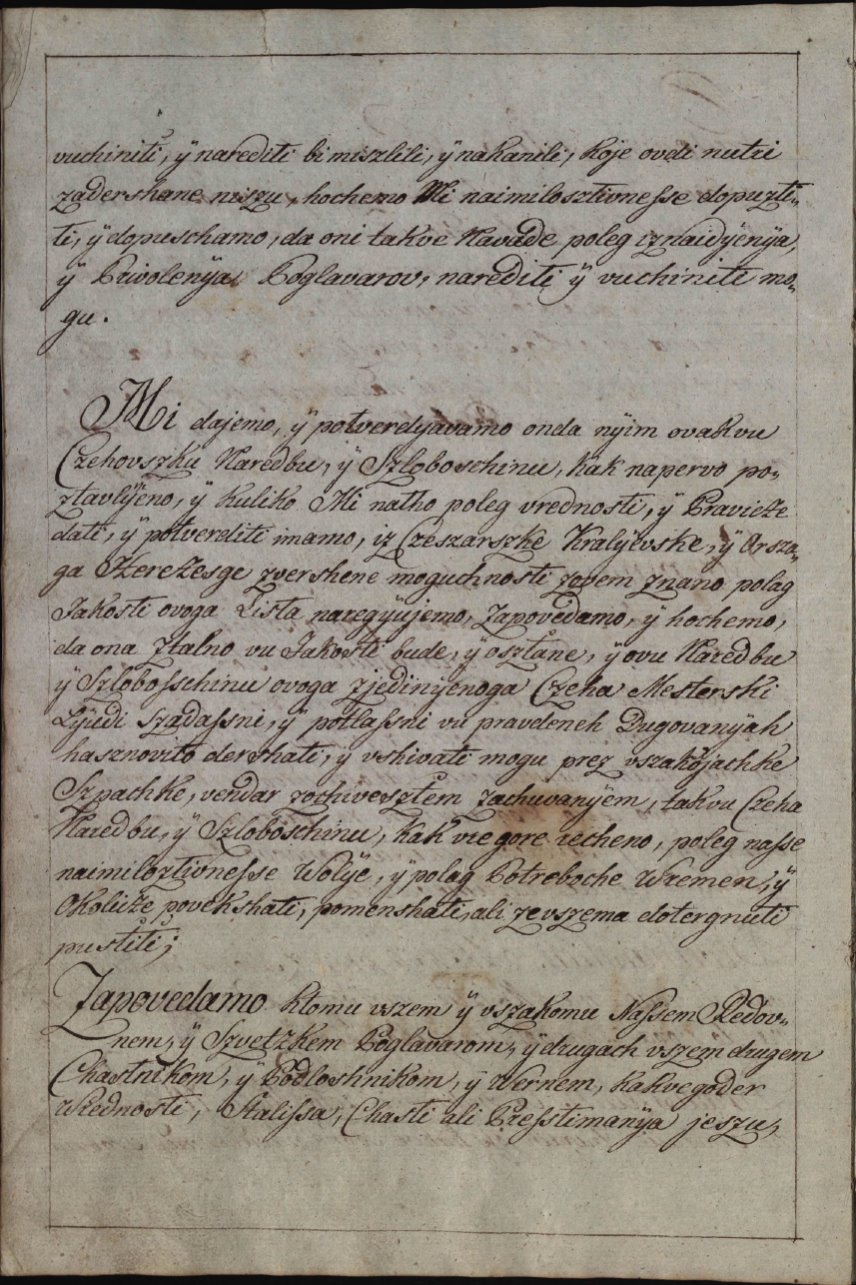 vuchiniti, ÿ narediti bi miszlili, ÿ nakanili, koje ovdi nutri
zadershane niszu, hochemo Mi naimilosztivnesse dopuzti-
ti, ÿ dopuschamo, da oni takve Navade poleg iznaidyenÿa,
ÿ Privolenÿa Poglavarov, narediti ÿ vuchiniti mo-
gu.
Mi dajemo, ÿ potverdyavamo onda nÿim ovakvu
Czehovszku Naredbu, ÿ Szloboschinu, kak napervo po-
ztavlÿeno, ÿ kuliko Mi natho poleg vrednosti, ÿ Pravicze
dati, ÿ potverditi imamo, iz Czeszarszke Kralÿevske, ÿ Orsza-
ga zvershene moguchnosti zovem znano polag
Jakosti ovoga Lista naregyujemo, Zapovedamo, ÿ hochemo,
da ona Ztalno vu Jakosti bude, ÿ osztane, ÿ ovu Naredbu
ÿ Szlobosschinu ovoga zjedinÿenoga Czeha Mesterski
Lÿudi szadassni, ÿ potlassni vu pravdeneh Dugovanÿah
hasznovito dershati, ÿ vshivati mogu prez vszakojachke
Szpachke, vendar zochivesztem zachuvanÿem, takvu Czeha
Naredbu, ÿ Szloboschinu, kak vre gore recheno, poleg nasse
naimiloztivnesse Wolÿe, ÿ polag Potreboche Wremen, ÿ
Okolicze povekshati, pomenshati, ali zevszema dotergnuti
pustiti;
Zapovedamo ktomu vszem ÿ vszakomu Nassem Redov-
nem, ÿ Szvetzkem Poglavarom, ÿ drugach vszem drugem
Chastnikom, ÿ Podloshnikom, ÿ Wernem, kakvegoder
Wrednosti, Stalissa, Chasti ali Presstimanÿa jeszu,